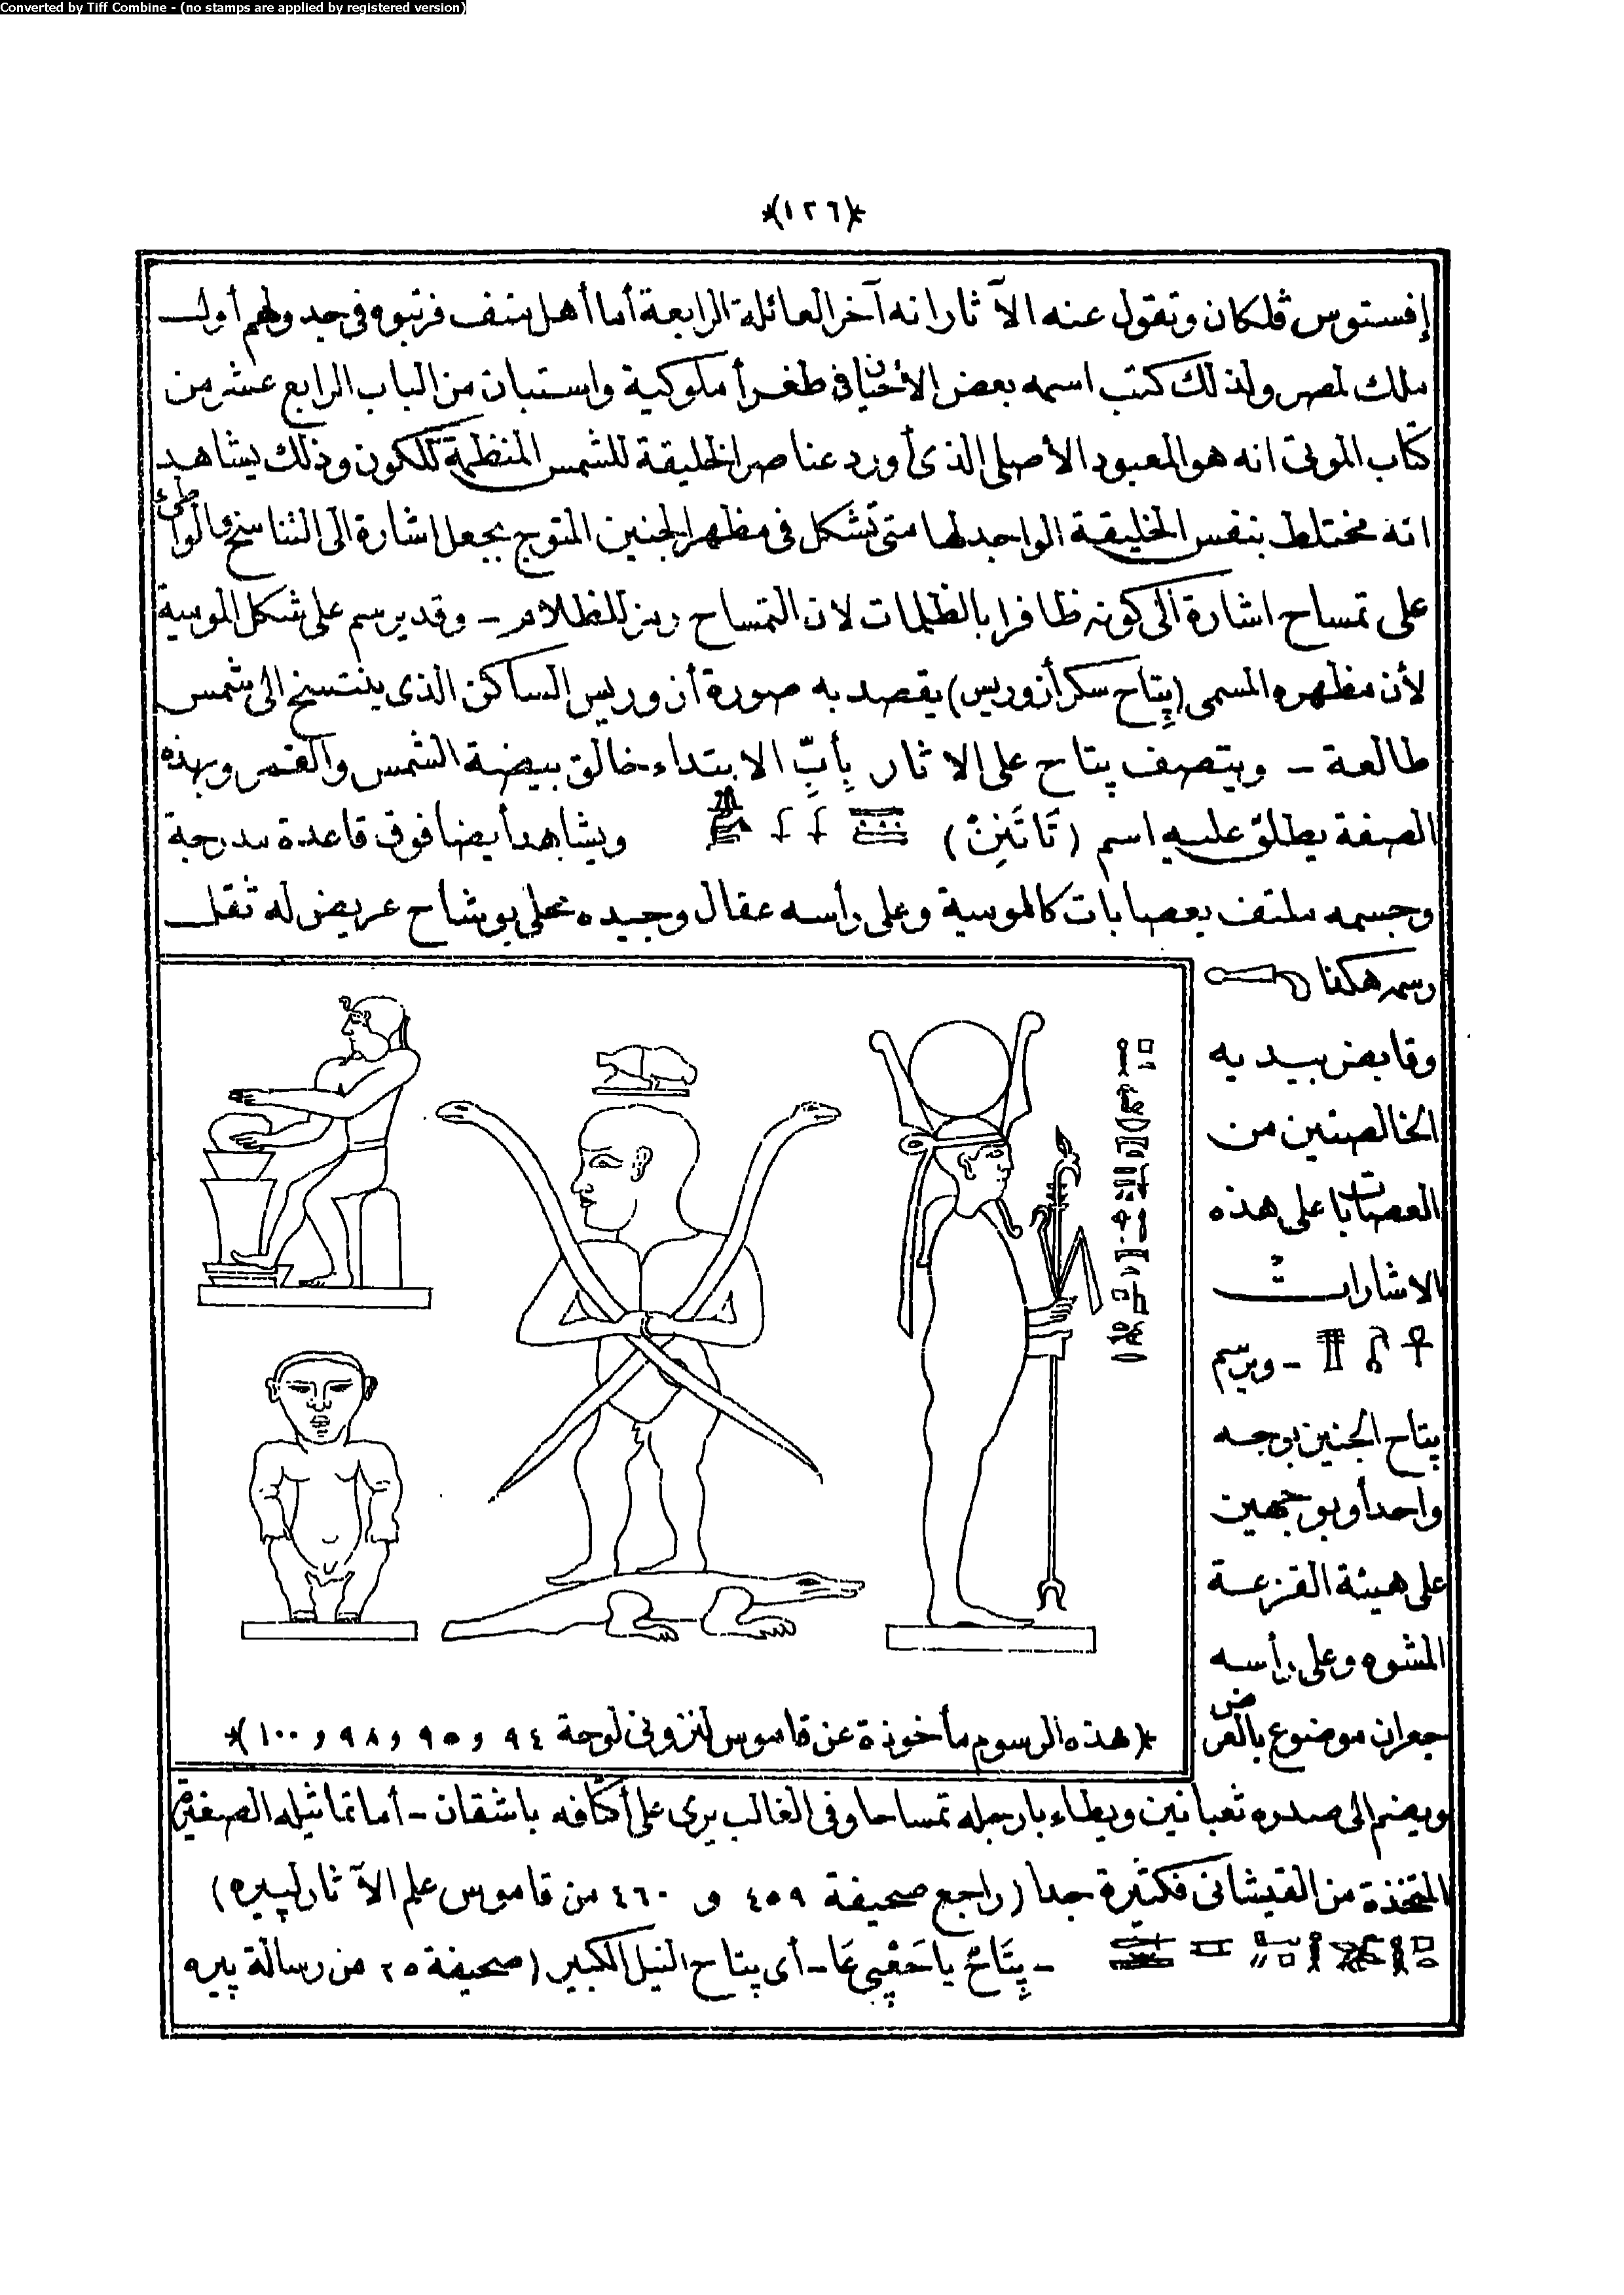 Converted by Tiff Combine - (no stamps are applied by registered version)
*(١٢٦)*
إفستوس ڤلكان وتقول عنه الآثار انه آخر العائلة الرابعة أما أهل منف فرتبوه في جدولهم أول
ملك لمصر ولذلك كتب اسمه بعض الأحيان في طغرأ ملوكية واستبان من الباب الرابع عشر من
كتاب الموتى انه هو المعبود الأصلي الذي أورد عناصر الخليقة للشمس المنظمة للكون وذلك يشاهد
انه مختلط بنفس الخليقة الواجد لها متى تشكل في مظهر الجنين المتوج بجعل اشارة الى التناسخ الواطئ
على تمساح اشارة الى كونه ظافرا بالظلمات لان التمساح رمز للظلام – وقد يرسم على شكل الموسية
لأن مظهره المسمى (پتاح سكر أزوريس) يقصد به صورة أزوريس الساكن الذي ينتسخ الى شمس
طالعة – ويتصف پتاح على الاثار بأب الابتداء خالق بيضة الشمس والقمر وبهذه
الصفة يطلق عليه اسم (تَاتَنِنْ) ويشاهد أيضا فوق قاعدة مدرجة
وجسمه ملتف بعصابات كالموسية وعلى رأسه عقال وجيده محلى بوشاح عريض له ثقل
رسمه هكذا
وقابض بيديه
الخالصتين من
العصابات على هذه
الاشارات
– ويرسم
پتاح الجنين بوجه
واحد أو بوجهين
على هيئة القزعة
المشوه وعلى رأسه
جعران موضوع بالعرض
*(هذه الرسوم مأخوذة عن قاموس لنزوني لوحة ٩٤ و ٩٥ و ٩٨ و ١٠٠)*
ويضم الى صدره ثعبانين ويطاء بارجله تمساحا وفي الغالب يرى على أكتافه باشقان – أما تماثيله الصغيرة
المتخذة من القيشاني فكثيرة جدا (راجع صحيفة ٤٥٩ و ٤٦٠ من قاموس علم الآثار لپيره)
– پتَاحْ يا حَعْپي عَا – أى پتاح النيل الكبير (صحيفة ٢٥ من رسالة پيره